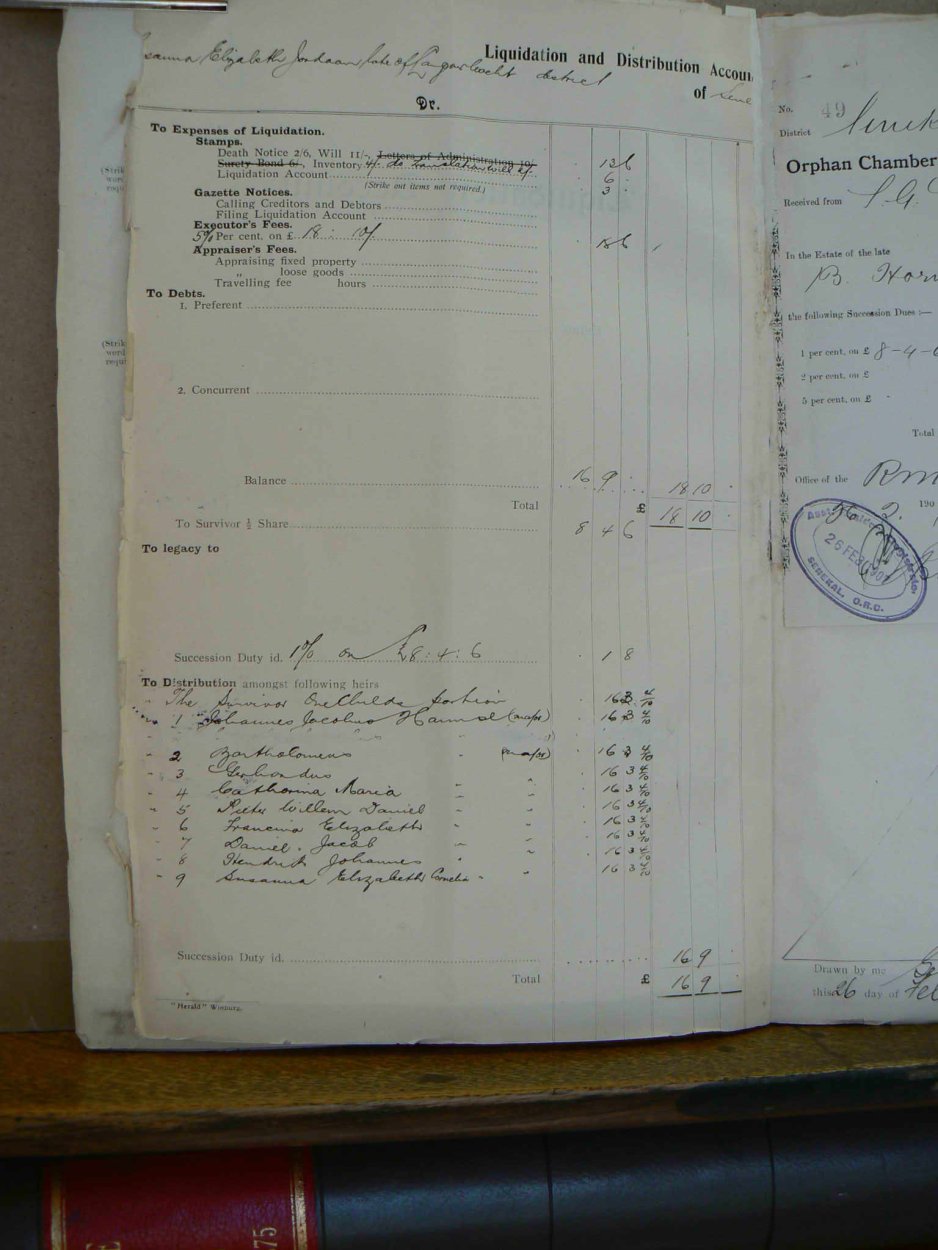 Elizabeth Jordaan late of district
Liquidation and Distribution Accoun
of Sene
Dr.
To Expenses of Liquidation.
Stamps.
Death Notice 2/6, Will 11/-, Letters of Administration 10/-
Surety Bond 6/-, Inventory 4/- do translation will 2/-
13 6
Liquidation Account
6
(Strike out items not required.)
3
Gazette Notices.
Calling Creditors and Debtors
Filing Liquidation Account
Executor's Fees.
5% Per cent. on £ 18 : 10/ 18 6
Appraiser's Fees.
Appraising fixed property
„ loose goods
Travelling fee hours
To Debts.
1. Preferent
2. Concurrent
Balance 16 9 18 10
Total £ 18 10
To Survivor ½ Share 8 4 6
To legacy to
Succession Duty id. 1% on £8 : 4 : 6 1 8
To Distribution amongst following heirs
The Survivor One Childs portion 16 3 4/10
1 Johannes Jacobus (major) 16 3 4/10
2 Bartholomeus (major) 16 3 4/10
3 16 3 4/10
4 Catharina Maria 16 3 4/10
5 Pieter Willem Daniel 16 3 4/10
6 Francina Elizabeth 16 3 4/10
7 Daniel Jacob 16 3 4/10
8 Hendrik Johannes 16 3 4/10
9 Susanna Elizabeth Cornelia 16 3 4/10
Succession Duty id. 16 9
Total £ 16 9
"Herald" Winburg.
No. 49
District
Orphan Chamber
Received from
In the Estate of the late
B.
the following Succession Dues :—
1 per cent. on £ 8-4-
2 per cent. on £
5 per cent. on £
Total
Office of the RM
26 2. 190
26 FEB 190
SENEKAL, O.R.C.
Drawn by me
this 26 day of Fe
(Strik
word
requi
(Strik
word
requi
75